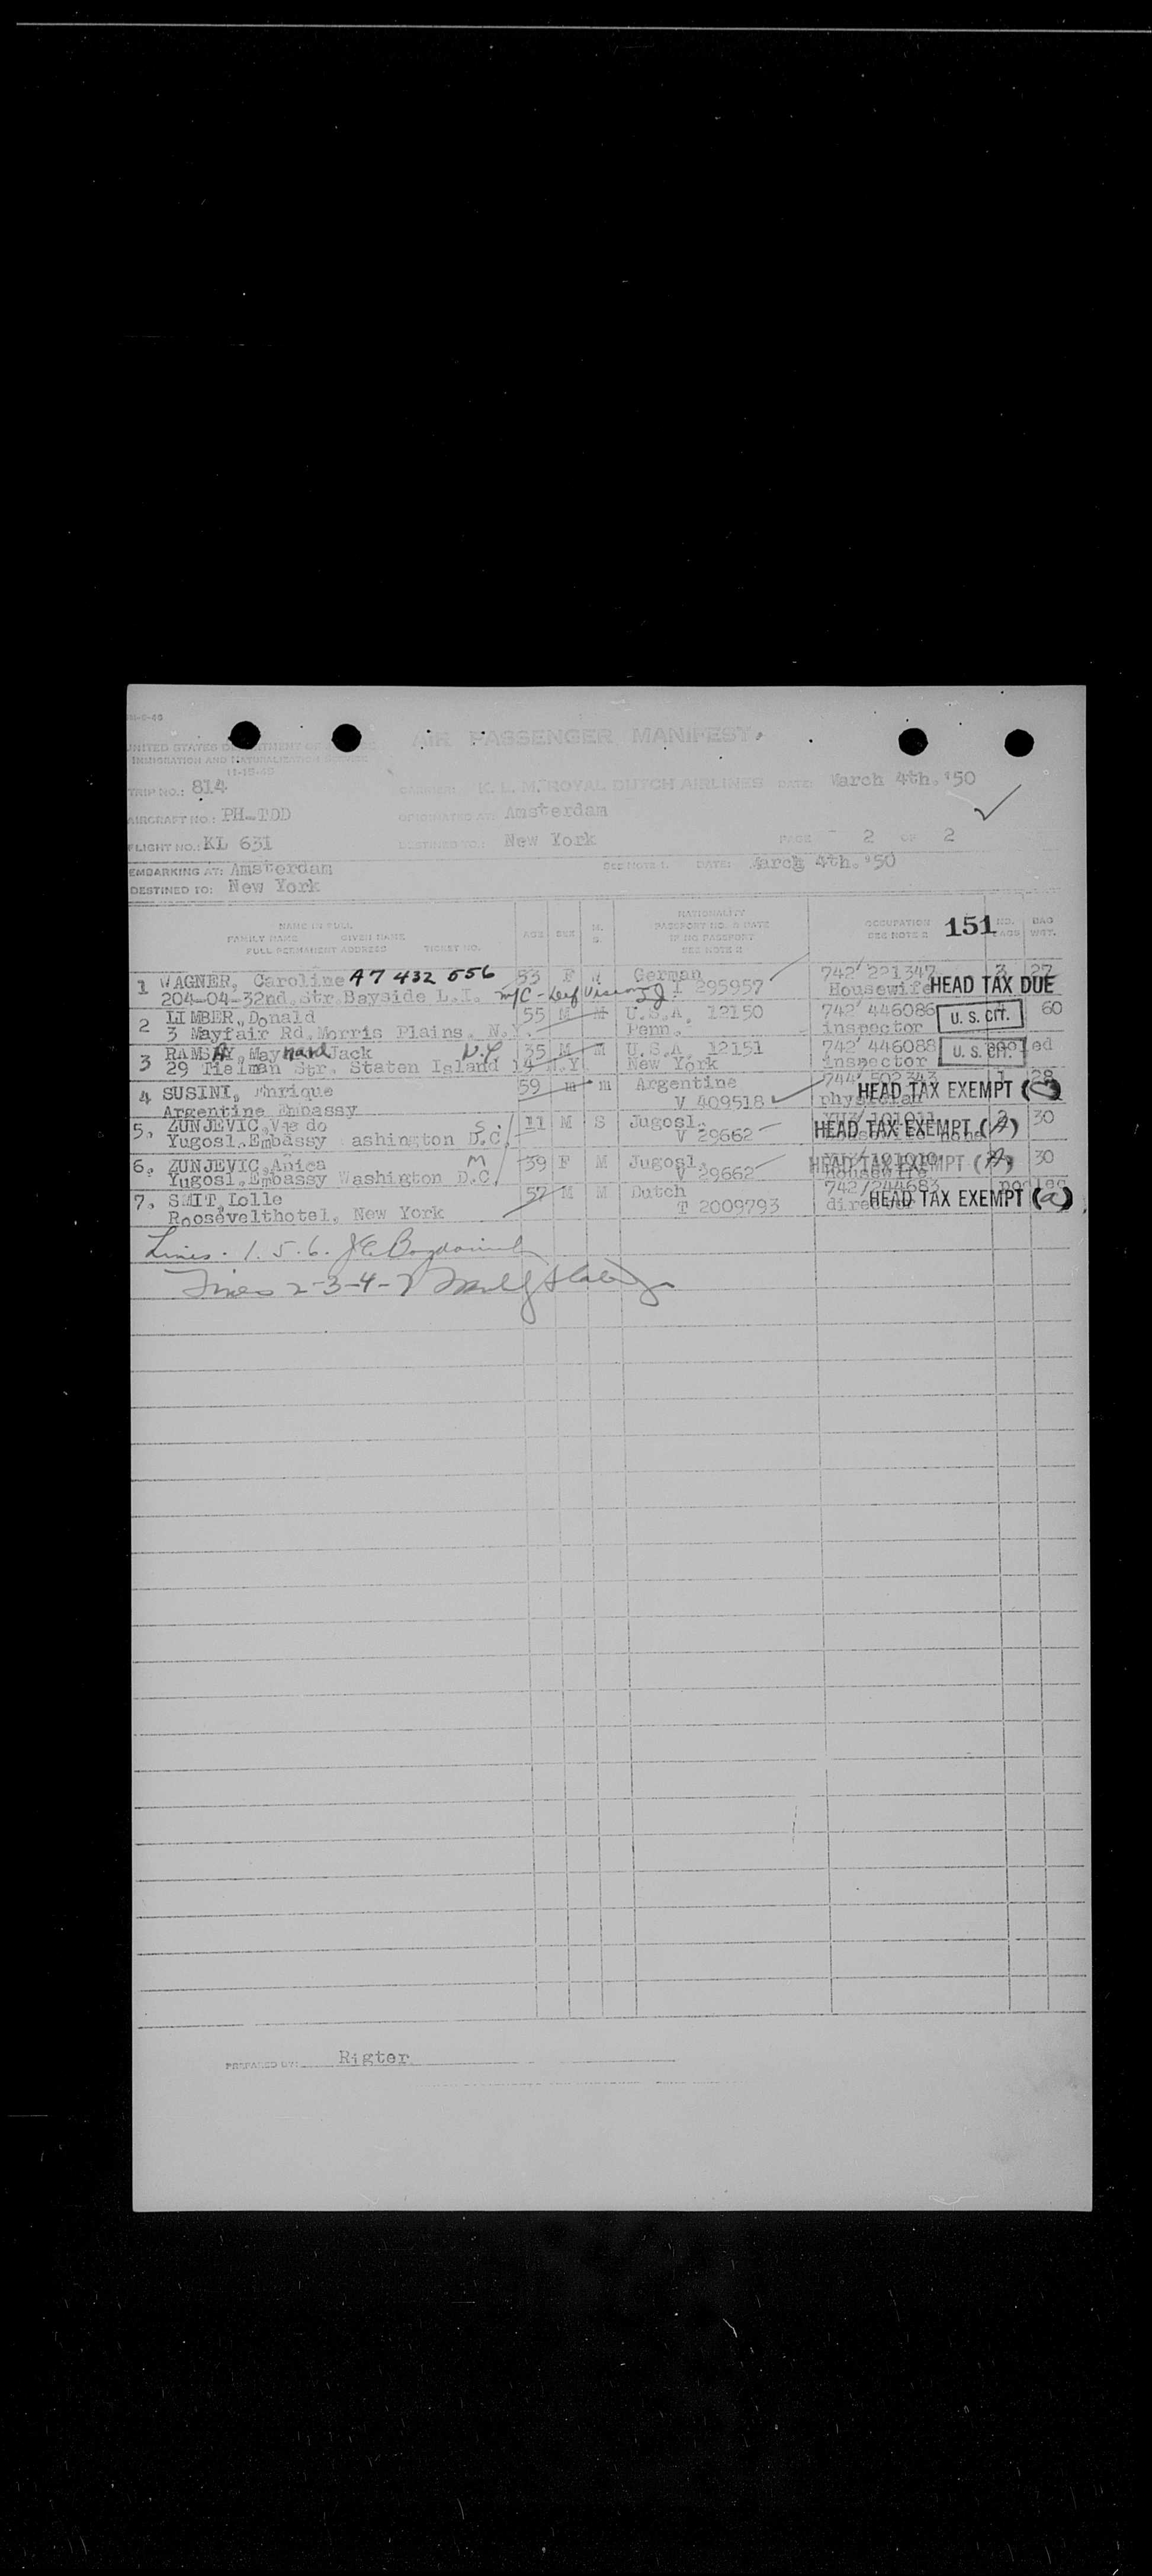 UNITED STATES DEPARTMENT OF JUSTICE
IMMIGRATION AND NATURALIZATION SERVICE
11-15-45
AIR PASSENGER MANIFEST
TRIP NO.: 814
CARRIER: K. L. M. ROYAL DUTCH AIRLINES DATE: March 4th. '50
AIRCRAFT NO.: PH-TDD ORIGINATED AT: Amsterdam
FLIGHT NO.: KL 631 DESTINED TO: New York PAGE 2 OF 2
EMBARKING AT: Amsterdam SEE NOTE 1. DATE: March 4th. '50
DESTINED TO: New York
NAME IN FULL
FAMILY NAME GIVEN NAME
FULL PERMANENT ADDRESS TICKET NO.
AGE SEX M. S.
NATIONALITY
PASSPORT NO. & DATE
IF NO PASSPORT
SEE NOTE 2
OCCUPATION
SEE NOTE 2
151
NO. BAGS BAG WGT.
1 WAGNER, Caroline A7 432 556 53 F W German 742/221347 3 27
204-04-32nd. Str. Bayside L.I. I 295957 Housewife HEAD TAX DUE
2 LIMBER, Donald 55 M M U.S.A. 12150 742/446086 60
3 Mayfair Rd, Morris Plains. N.Y. Penn. inspector U. S. CIT.
3 RAMSAY, Maynard Jack N.Y. 35 M M U.S.A. 12151 742/446088 ed
29 Tielman Str. Staten Island 14 N.Y. New York inspector U. S. CIT.
4 SUSINI, Enrique 59 m m Argentine 744/502343 1 28
Argentine Embassy V 409518 physician HEAD TAX EXEMPT
5. ZUNJEVIC, do S 11 M S Jugosl. 2 30
Yugosl. Embassy ashington D.C. V 29662 HEAD TAX EXEMPT (A)
6. ZUNJEVIC, Anica M 39 F M Jugosl. 30
Yugosl. Embassy Washington D.C. V 29662 housewife HEAD TAX EXEMPT
7. SMIT, Lolle 57 M M Dutch 742/244683 pooled
Roosevelthotel, New York T 2009793 director HEAD TAX EXEMPT (a)
Lines. 1. 5. 6.
Lines 2-3-4-7
PREPARED BY: Rigter